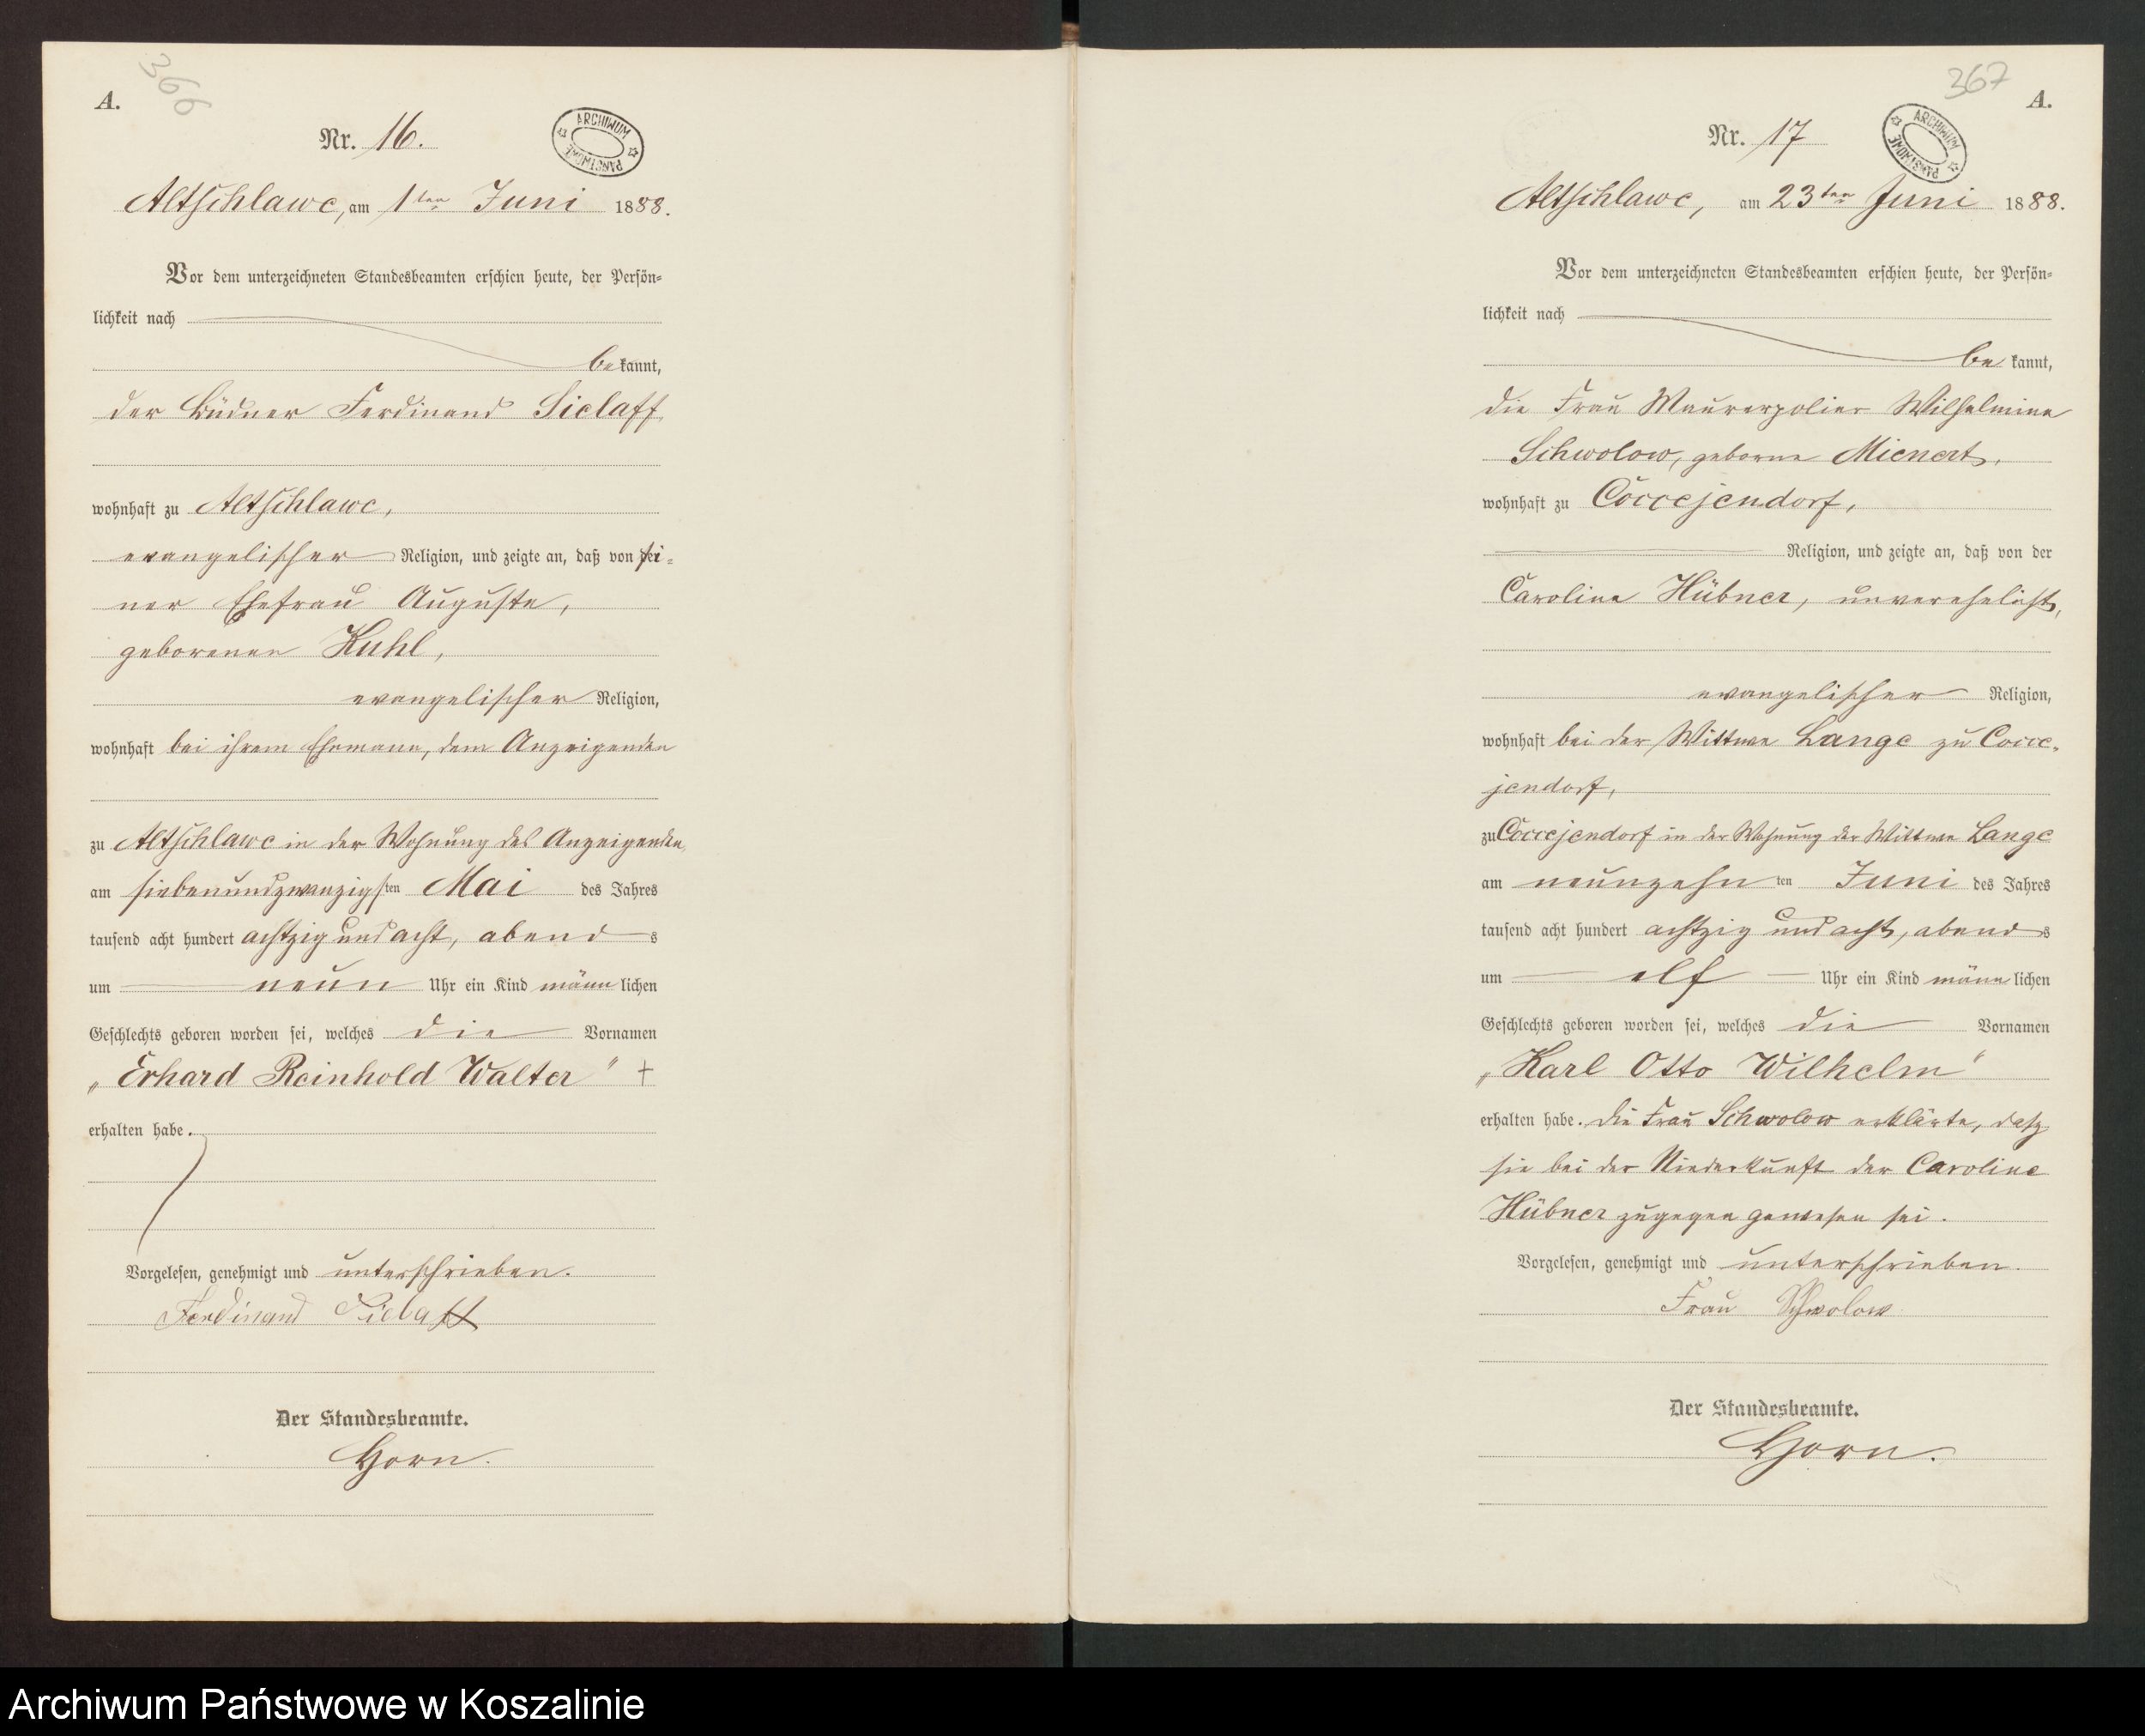 366
A.
Nr. 16.
ARCHIWUM PAŃSTWOWE
Altschlawe, am 1ten Juni 1888.
Vor dem unterzeichneten Standesbeamten erschien heute, der Persön-
lichkeit nach
bekannt,
der Büdner Ferdinand Sielaff
wohnhaft zu Altschlawe,
evangelischer Religion, und zeigte an, daß von sei-
ner Ehefrau Auguste,
geborenen Kuhl,
evangelischer Religion,
wohnhaft bei ihrem Ehemann, dem Anzeigenden
zu Altschlawe in der Wohnung des Anzeigenden,
am siebenundzwanzigsten Mai des Jahres
tausend acht hundert achtzig und acht, abends
um neun Uhr ein Kind männlichen
Geschlechts geboren worden sei, welches die Vornamen
„Erhard Reinhold Walter" †
erhalten habe.
Vorgelesen, genehmigt und unterschrieben.
Ferdinand Sielaff
Der Standesbeamte.
Horn.
367
A.
Nr. 17
ARCHIWUM PAŃSTWOWE
Altschlawe, am 23ten Juni 1888.
Vor dem unterzeichneten Standesbeamten erschien heute, der Persön-
lichkeit nach
bekannt,
die Frau Maurerpolier Wilhelmine
Schwolow, geborne Mienert,
wohnhaft zu Coccejendorf,
Religion, und zeigte an, daß von der
Caroline Hübner, unverehelicht,
evangelischer Religion,
wohnhaft bei der Wittwe Lange zu Cocce-
jendorf,
zu Coccejendorf in der Wohnung der Wittwe Lange
am neunzehnten Juni des Jahres
tausend acht hundert achtzig und acht, abends
um elf Uhr ein Kind männlichen
Geschlechts geboren worden sei, welches die Vornamen
„Karl Otto Wilhelm"
erhalten habe. Die Frau Schwolow erklärte, daß
sie bei der Niederkunft der Caroline
Hübner zugegen gewesen sei.
Vorgelesen, genehmigt und unterschrieben.
Frau Schwolow
Der Standesbeamte.
Horn.
Archiwum Państwowe w Koszalinie